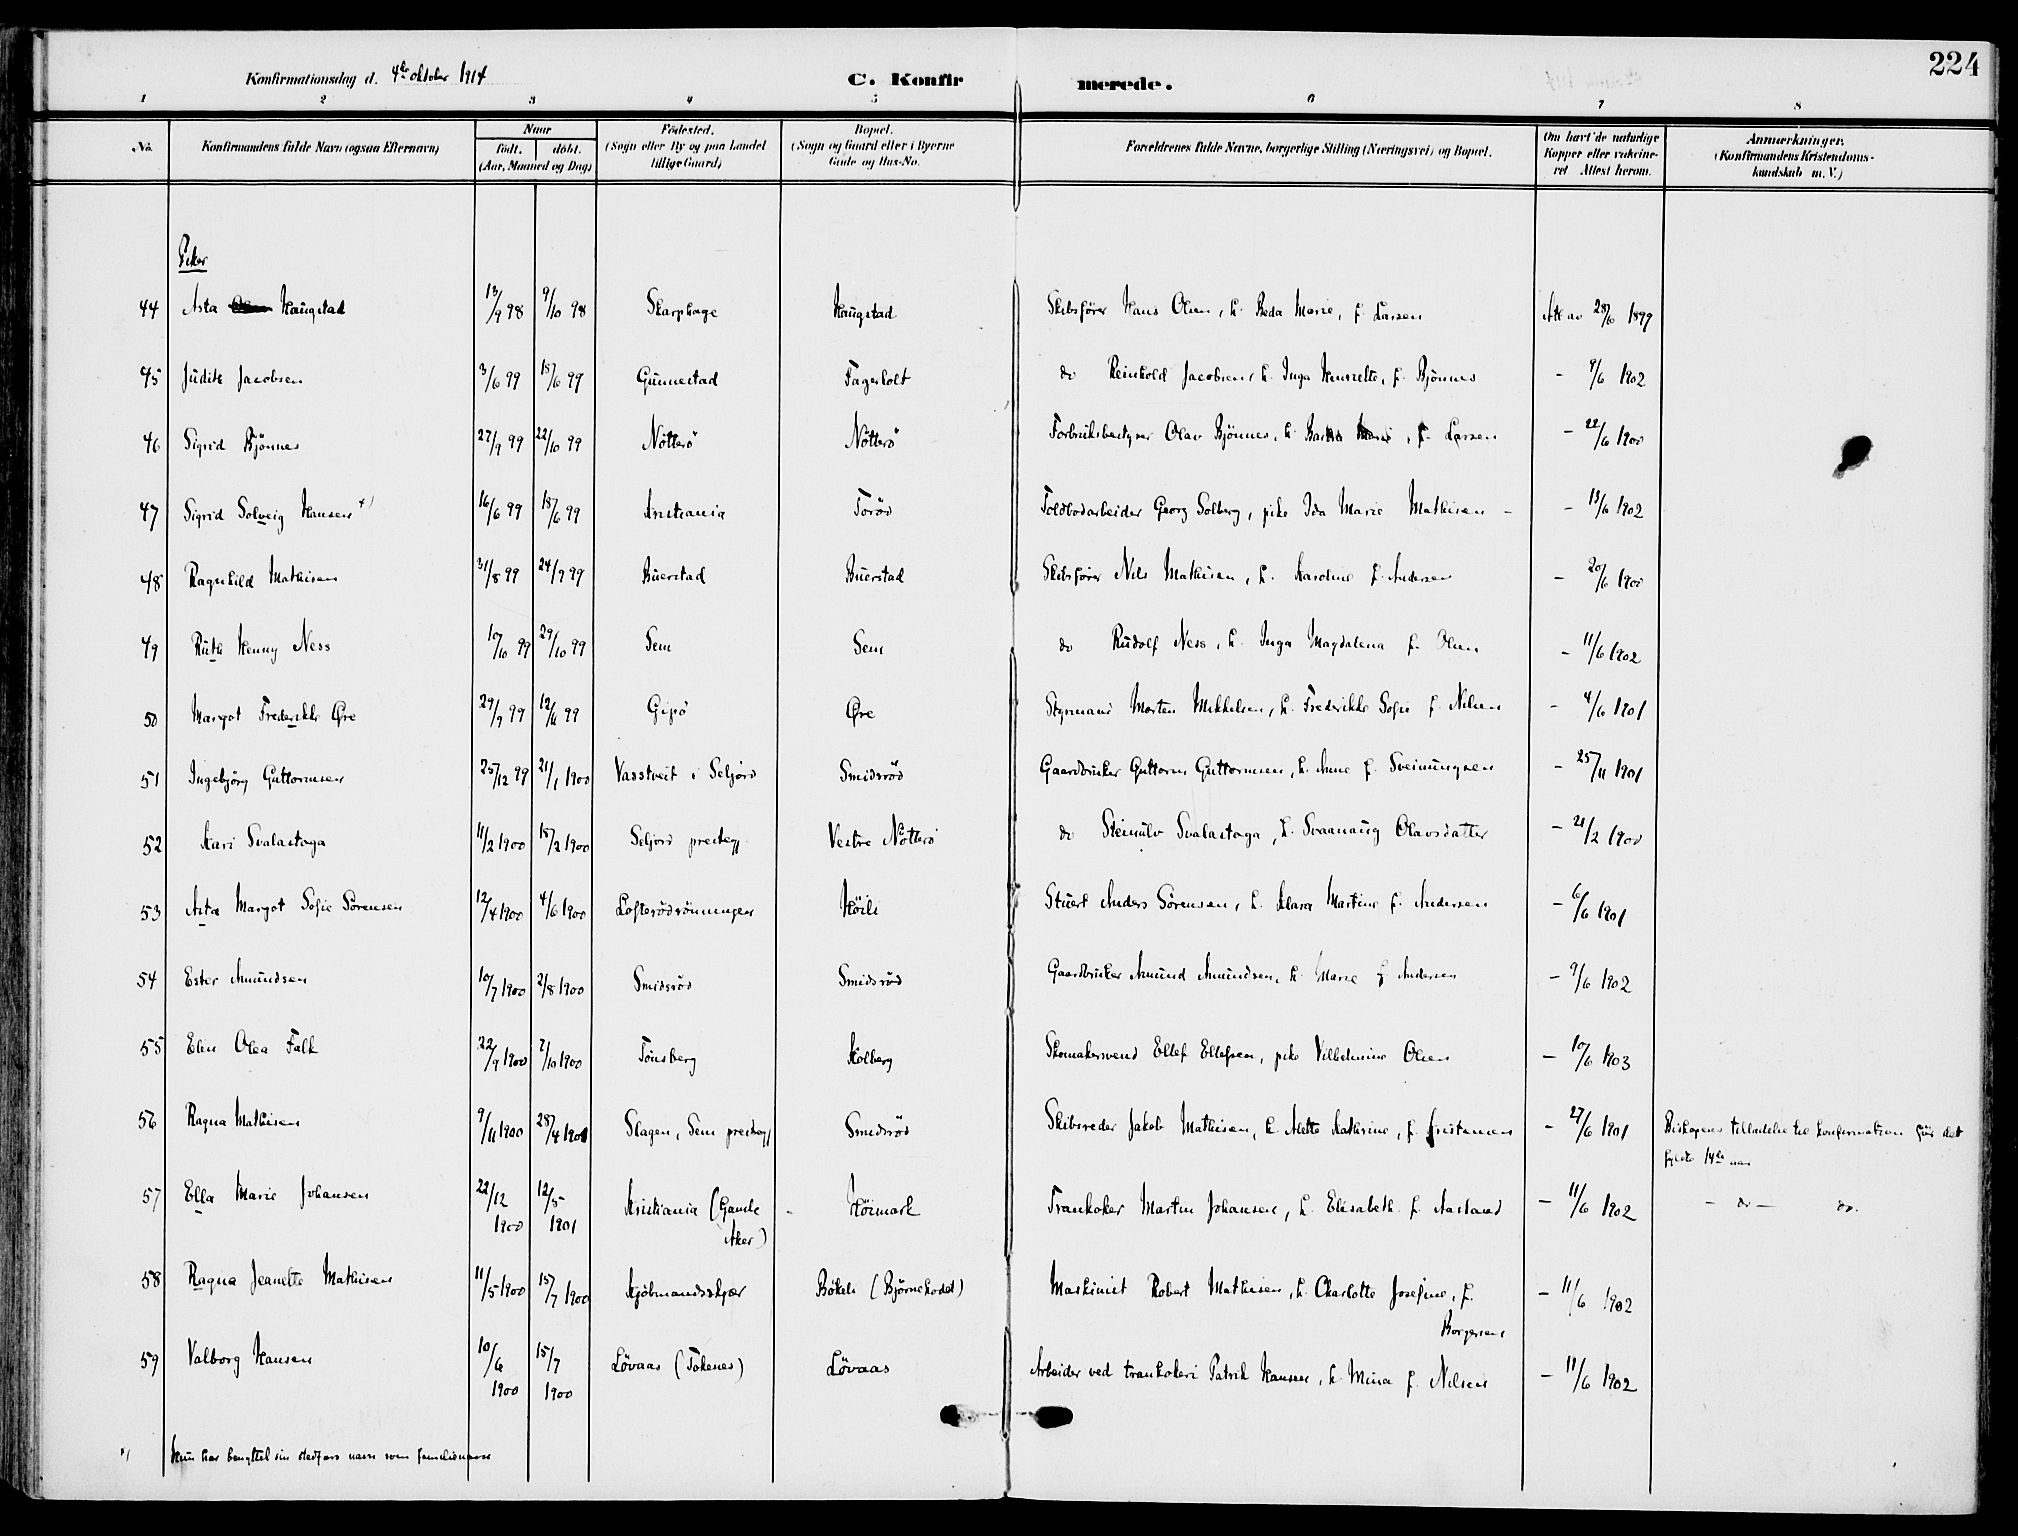 224
Konfirmationsdag d. 4de oktober 1914 C. Konfirmerede.
1 2 3 4 5 6 7 8
No. Konfirmandens fulde Navn (ogsaa Efternavn) Naar født. døbt. (Aar, Maaned og Dag) Fødested. (Sogn eller By og paa Landet tillige Gaard) Bopæl. (Sogn og Gaard eller i Byerne Gade og Hus-No. Forældrenes fulde Navne, borgerlige Stilling (Næringsvei) og Bopæl. Om havt de naturlige Kopper eller vakcineret Attest herom. Anmærkninger. (Konfirmandens Kristendomskundskab m. V.)
Piker
44 Asta Haugstad 13/9 98 9/10 98 Skarphage Haugstad Skibsfører Hans Olsen, h. Beda Marie, f. Larsen Att av 28/6 1899
45 Judith Jacobsen 3/6 99 18/6 99 Gunnestad Fagerholt do Reinhold Jacobsen, h. Inga Henriette, f. Bjønnes - 9/6 1902
46 Sigrid Bjønnes 27/9 99 22/10 99 Nötterö Nötterö Forbruksbestyrer Olav Bjönnes, h. Marie, f. Larsen - 22/6 1900
47 Sigrid Solveig Hansen x) 16/6 99 18/6 99 Kristiania Töröd Toldbodarbeider Georg Solberg, pike Ida Marie Mathisen - - 13/6 1902
48 Ragnhild Mathisen 31/8 99 24/9 99 Buerstad Buerstad Skibsfører Nils Mathisen, h. Karoline f. Andersen - 20/6 1900
49 Ruth Henny Ness 10/10 99 29/10 99 Sem Sem do Rudolf Ness, h. Inga Magdalena f. Olsen - 11/6 1902
50 Margot Frederikke Øre 29/9 99 12/11 99 Gipö Øre Styrmand Morten Mikkelsen, h. Frederikke Sofie f. Nilsen - 4/6 1901
51 Ingebjörg Guttormsen 25/12 99 21/1 1900 Vasstveit i Seljord Smidsröd Gaardbruker Guttorm Guttormsen, h. Anne f. Sveinungsen - 25/11 1901
52 Kari Svalastoga 11/2 1900 18/2 1900 Seljord prestegj. Vestre Nötterö do Steinulv Svalastoga, h. Svaanaug Olavsdatter - 21/2 1900
53 Asta Margot Sofie Sörensen 12/4 1900 4/6 1900 Lofterödrönningen Höili Stuert Anders Sörensen, h. Klara Martine f. Andersen - 6/6 1901
54 Ester Amundsen 10/7 1900 2/8 1900 Smidsröd Smidsröd Gaardbruker Amund Amundsen, h. Marie f Andersen - 9/6 1902
55 Elen Olea Falk 22/9 1900 7/10 1900 Tönsberg Kolberg Skomakersvend Ellef Ellefsen, pike Vilhelmine Olsen - 10/6 1903
56 Ragna Mathisen 9/11 1900 28/4 1901 Slagen, Sem prestegj Smidsröd Skibsreder Jakob Mathisen, h. Alette Kathrine, f. Kristensen - 27/6 1901 Biskopens tilladelse til konfirmation før det
fyldte 14de aar
57 Ella Marie Johansen 22/12 1900 12/5 1901 Kristiania (Gamle Aker) - Höimark Trankoker Martin Johansen, h. Elisabeth f. Aasland - 11/6 1902 - do - do.
58 Ragna Jeanette Mathisen 11/5 1900 15/7 1900 Kjöbmandsskjær Bökeli (Björnehodet) Maskinist Robert Mathisen, h. Charlotte Josefine, f.
Borgersen - 11/6 1902
59 Valborg Hansen 10/6 1900 15/7 1900 Lövaas (Tokenes) Lövaas Arbeider ved trankokeri Patrik Hansen, h. Mina f. Nilsen - 11/6 1902
x) Hun har benyttet sin stedfars navn som familienavn